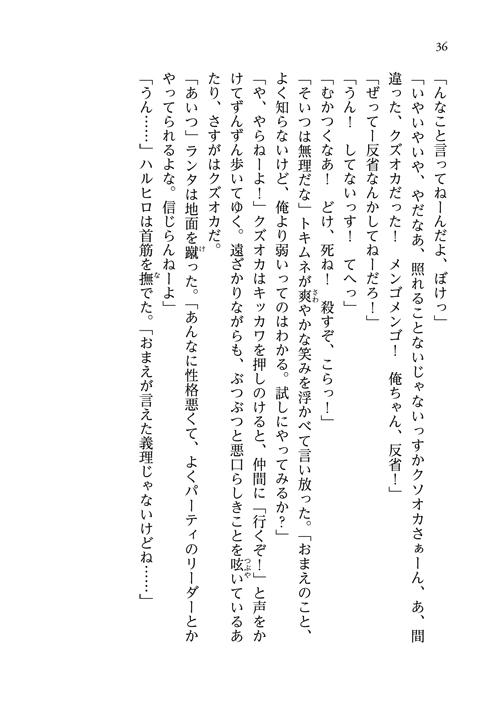 36
「んなこと言ってねーんだよ、ぼけっ」
「いやいやいや、やだなあ、照れることないじゃないっすかクソオカさぁーん、あ、間
違った、クズオカだった！　メンゴメンゴ！　俺ちゃん、反省！」
「ぜってー反省なんかしてねーだろ！」
「うん！　してないっす！　てへっ」
「むかつくなあ！　どけ、死ね！　殺すぞ、こらっ！」
「そいつは無理だな」トキムネが爽やかな笑みを浮かべて言い放った。「おまえのこと、
よく知らないけど、俺より弱いってのはわかる。試しにやってみるか？」
「や、やらねーよ！」クズオカはキッカワを押しのけると、仲間に「行くぞ！」と声をか
けてずんずん歩いてゆく。遠ざかりながらも、ぶつぶつと悪口らしきことを呟いているあ
たり、さすがはクズオカだ。
「あいつ」ランタは地面を蹴った。「あんなに性格悪くて、よくパーティのリーダーとか
やってられるよな。信じらんねーよ」
「うん……」ハルヒロは首筋を撫でた。「おまえが言えた義理じゃないけどね……」